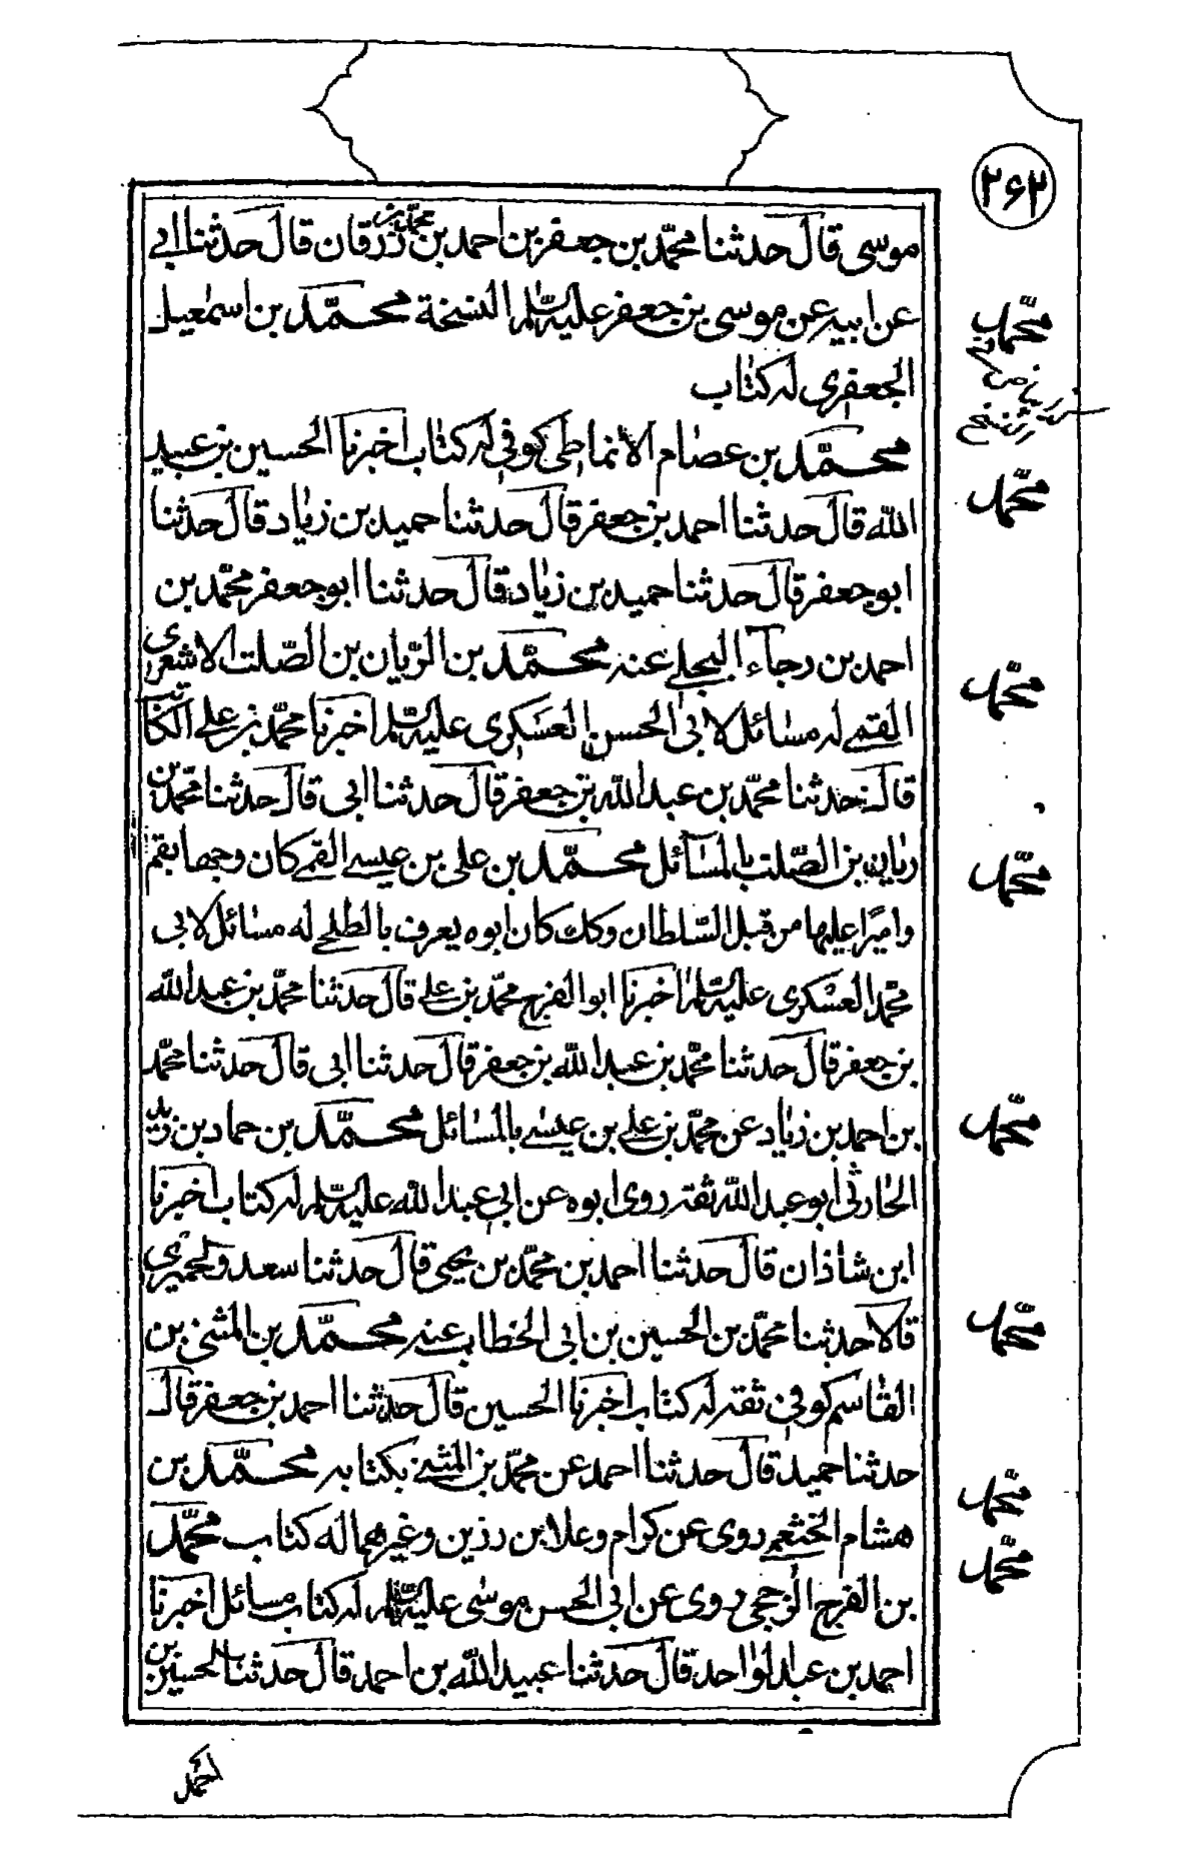 ٢۶٢
موسی قال حدثنا محمّد بن جعفر بن احمد بن محمّد بن زرقان قال حدثنا ابي
عن ابيه عن موسی بن جعفر عليه السّلم النسخة محمّد بن اسمٰعيل
الجعفری له كتٰاب
محمّد بن عصٰام الانماطی كوفی له كتٰاب اخبرنا الحسين بن عبيد
اللّه قال حدثنا احمد بن جعفر قال حدثنا حميد بن زيٰاد قال حدثنا
ابو جعفر قال حدثنا حميد بن زيٰاد قال حدثنا ابو جعفر محمّد بن
احمد بن رجآء البجلے عنه محمّد بن الريّان بن الصّلت الاشعری
القمے له مسٰائل لابی الحسن العسكری عليه السّلم اخبرنا محمّد بن علے الكٰاتب
قال حدثنا محمّد بن عبد اللّه بن جعفر قال حدثنا ابی قال حدثنا محمّد بن
ريٰان بن الصّلت بالمسٰائل محمّد بن علی بن عيسے القمے كان وجها بقم
واميرًا عليها من قبل السّلطان وكك كان ابوه يعرف بالطلحے له مسٰائل لابی
محمّد العسكری عليه السّلم اخبرنا ابو الفرج محمّد بن علے قال حدثنا محمّد بن عبد اللّه
بن جعفر قال حدثنا محمّد بن عبد اللّه بن جعفر قال حدثنا ابی قال حدثنا محمّد
بن احمد بن زيٰاد عن محمّد بن علے بن عيسٰے بالمسٰائل محمّد بن حماد بن زيد
الحٰارثی ابو عبد اللّه ثقة روی ابوه عن ابی عبد اللّه عليه السّلم له كتاب اخبرنا
ابن شاذان قال حدثنا احمد بن محمّد بن يحيی قال حدثنا سعد والحميری
قالا حدثنا محمّد بن الحسين بن ابی الخطاب عنه محمّد بن المثنی بن
القٰاسم كوفی ثقة له كتاب اخبرنا الحسين قال حدثنا احمد بن جعفر قال
حدثنا حميد قال حدثنا احمد عن محمّد بن المثنے بكتابه محمّد بن
هشام الخثعمے روی عن كرام وعلا بن رزين وغيرهما له كتاب محمّد
بن الفرج الرخجی روی عن ابی الحسن موسٰی عليه السّلم له كتاب مسائل اخبرنا
احمد بن عبد الوٰاحد قال حدثنا عبيد اللّه بن احمد قال حدثنا الحسين بن
احمد
محمّد
محمّد
محمّد
محمّد
محمّد
محمّد
محمّد
محمّد